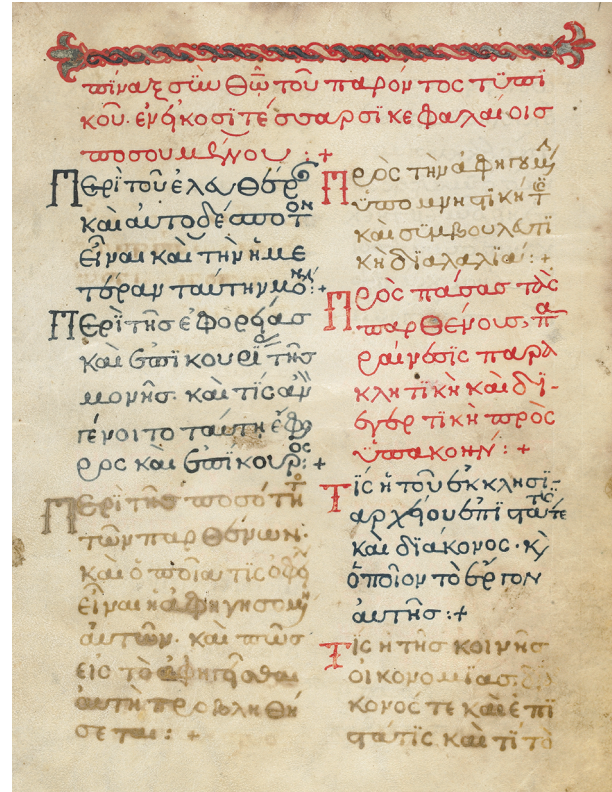 πίναξ σὺν Θῷ τοῦ παρόντος τυπι
κοῦ. ἐν εἴκοσι τέσσαρσι κεφαλαίοις
ποσουμένου :+
Περὶ τοῦ ἐλευθέρ
καὶ αὐτοδέσποτον
εἶναι καὶ τὴν ἡμε
τέραν ταύτην μονήν :+
Περὶ τῆς ἐφορείας
καὶ ἐπικουρίας τῆς
μονῆς. καὶ τίς ἂν
γένοιτο ταύτη ἔφο
ρος καὶ ἐπίκουρος :+
Περὶ τῆς ποσότητος
τῶν παρθένων.
καὶ ὁποία τις ὀφ
εἶναι ἡ ἀφηγησομένη
αὐτῶν. καὶ πῶς
εἰς τὸ ἀφηγεῖσθαι
αὕτη προβληθή
σεται : +
Πρὸς τὴν ἀφηγουμένην
ὑπομνηστική τε
καὶ συμβουλευτι
κὴ διαλαλία : +
Πρὸς πάσας τὰς
παρθένους, πα
ραίνεσις παρα
κλητικὴ καὶ δι-
εγερτικὴ πρὸς
ὑπακοήν : +
Τίς ἡ τοῦ ἐκκλησι-
αρχείου ἐπιστάτις τε
καὶ διάκονος. καὶ
ὁποῖον τὸ ἔργον
αὐτῆς :+
Τίς ἡ τῆς κοινῆς
οἰκονομίας διά
κονός τε καὶ ἐπι
στάτις καὶ τί τὸ